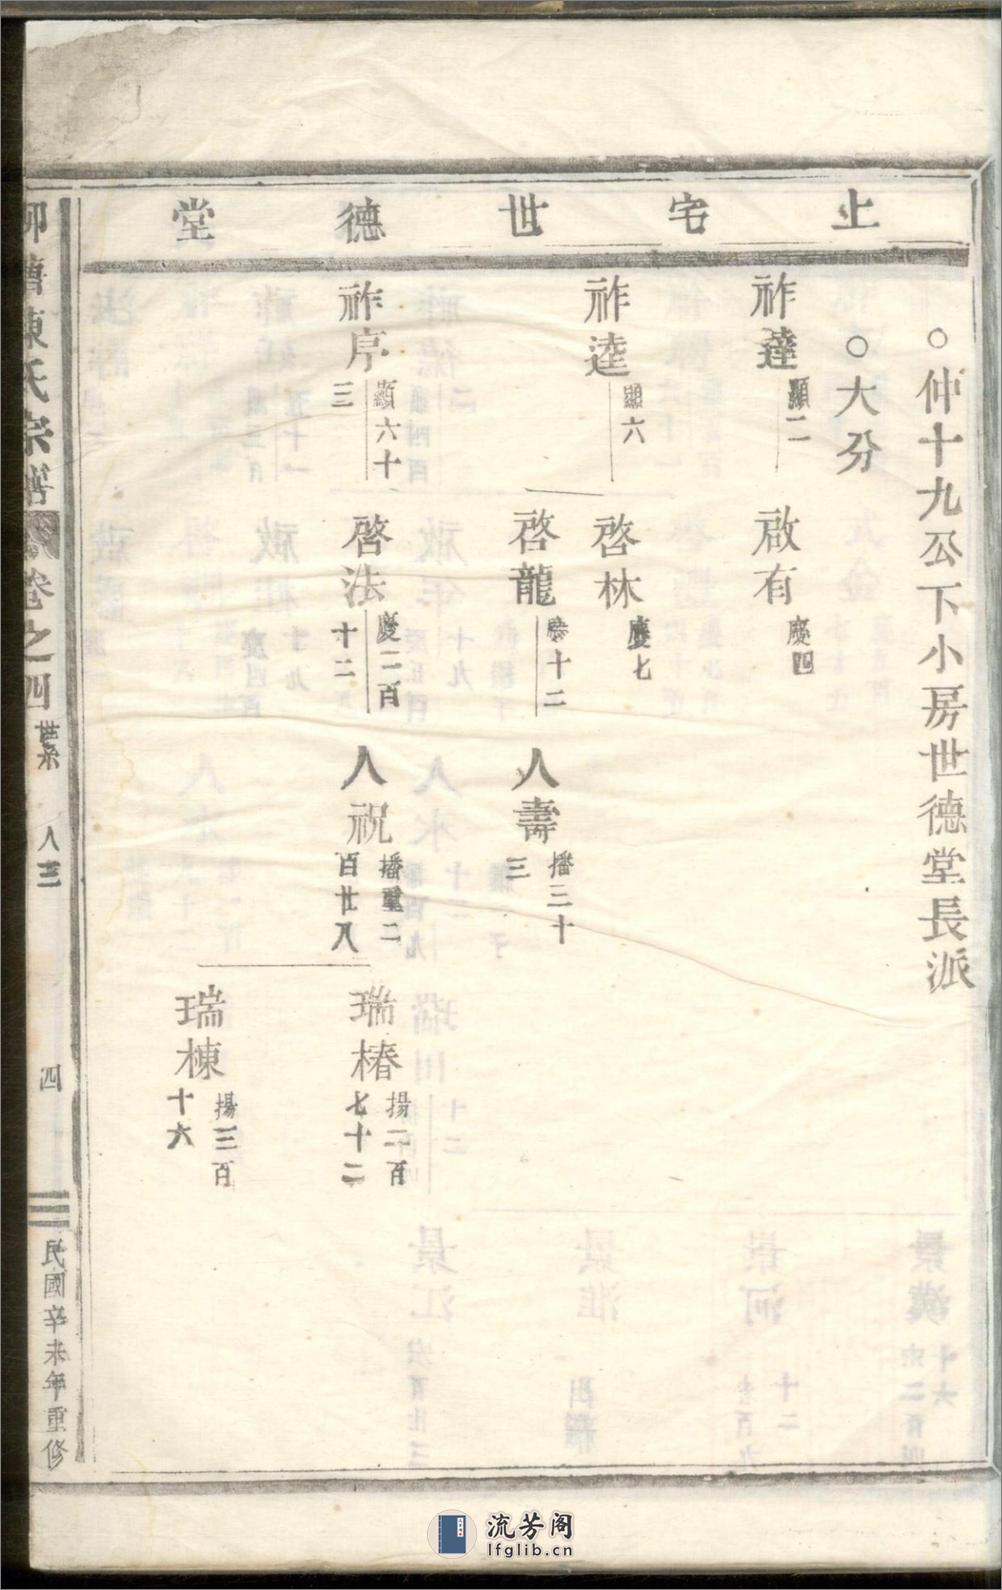 上宅世德堂
○仲十九公下小房世德堂長派
○大分
祚達 顯二
啟有 慶四
祚逵 顯六
啓林 慶七
啓龍 慶十二
人壽 播三十三
祚序 顯六十三
啓法 慶二百十二
人祝 播重二百廿八
瑞椿 揚二百七十二
瑞棟 揚三百十六
柳塘陳氏宗譜 卷之四 世系 人三 四 民國辛未年重修
流芳阁
lfglib.cn